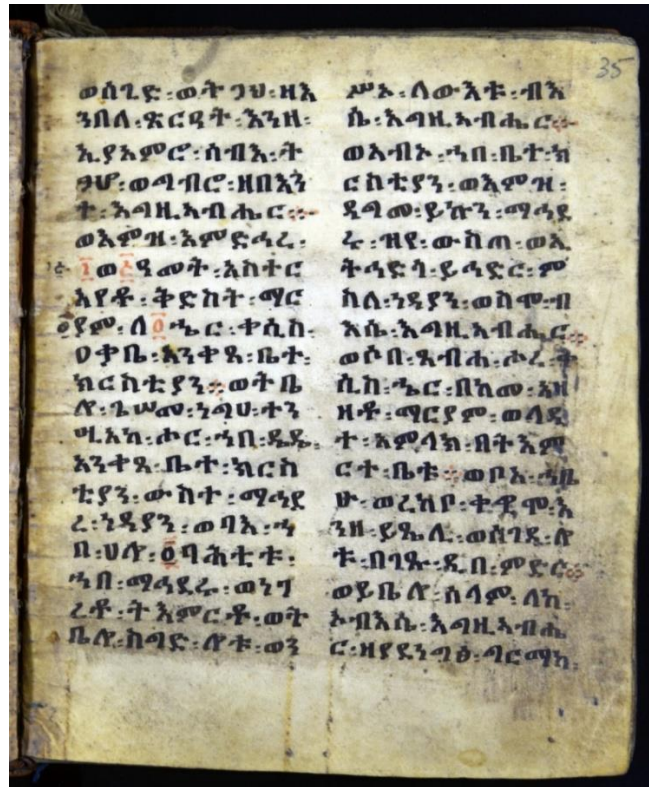 35
ወሰጊድ፡ወትጋህ፡ዘእ
ንበለ፡ጽርዓት፡እንዘ፡
ኢያአምሮ፡ሰብእ፡ት
ጋሆ፡ወገብሮ፡ዘበእን
ተ፡እግዚአብሔር፨
ወእምዝ፡እምድኅረ፡
፲ወ፩ዓመት፡አስተር
አየቶ፡ቅድስት፡ማር
ያም፡ለ፩ኄር፡ቀሲስ፡
ዐቃቤ፡አንቀጸ፡ቤተ፡
ክርስቲያን፨ወትቤ
ሎ፡ጌሠመ፡ነግሀ፡ተን
ሚአከ፡ሖር፡ኀበ፡ዴዴ፡
አንቀጸ፡ቤተ፡ክርስ
ቲያን፡ውስተ፡ማኅደ
ረ፡ነዳያን፡ወባእ፡ኀ
በ፡ሀሎ፡፩ባሕቲቱ፡
ኀበ፡ማኅደሩ፡ወነገ
ረቶ፡ትእምርቶ፡ወት
ቤሎ፡ስግድ፡ሎቱ፡ወን
ሥኦ፡ለውእቱ፡ብእ
ሴ፡እግዚአብሔር፨
ወአብኦ፡ኀበ፡ቤተ፡ክ
ርስቲያን፡ወእምዝ፡
ዳግመ፡ይኩን፡ማኅደ
ሩ፡ዝየ፡ውስጠ፡ወኢ
ትኅድጎ፡ይኅድር፡ም
ስለ፡ነዳያን፡ወስሞ፡ብ
እሴ፡እግዚአብሔር፨
ወሶበ፡ጸብሐ፡ሖረ፡ቀ
ሲስ፡ኄር፡በከመ፡አዘ
ዘቶ፡ማርያም፡ወላዲ
ተ፡አምላክ፡በትእም
ርተ፡ቤቱ፨ወቦአ፡ኀቤ
ሁ፡ወረከቦ፡ቀዊሞ፡እ
ንዘ፡ይጼሊ፡ወሰገደ፡ሎ
ቱ፡በገጹ፡ዲበ፡ምድር፨
ወይቤሎ፡ሰላም፡ለከ፡
ኦብእሴ፡እግዚአብሔ
ር፡ዘያደነግፅ፡ግርማከ፡